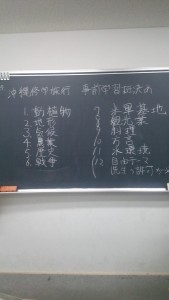 沖縄修学旅行 事前学習班決め
1. 動植物
2. 地形
3. 台風
4. 農業
5. 歴史
6. 戦争
7 米軍基地
8 観光業
9 料理
10 方言
11 水環境
12 自由テーマ